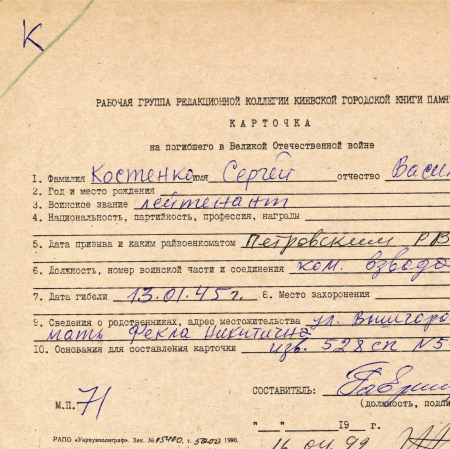 К
РАБОЧАЯ ГРУППА РЕДАКЦИОННОЙ КОЛЛЕГИИ КИЕВСКОЙ ГОРОДСКОЙ КНИГИ ПАМЯ
КАРТОЧКА
на погибшего в Великой Отечественной войне
1. Фамилия Костенко имя Сергей отчество Васи
2. Год и место рождения
3. Воинское звание лейтенант
4. Национальность, партийность, профессия, награды
5. Дата призыва и каким райвоенкоматом Петровским РВ
6. Должность, номер воинской части и соединения ком. взвода
7. Дата гибели 13.01.45 г. 8. Место захоронения
9. Сведения о родственниках, адрес местожительства ул. Вышгоро
мать Фекла Никитична
10. Основания для составления карточки изв. 528 сп №5
СОСТАВИТЕЛЬ:
(должность, подпи
М.П. 71
"__"______ 19__ г.
РАПО «Укрвузполиграф». Зак. № 05400, т. 50000 1990.
16 04 99